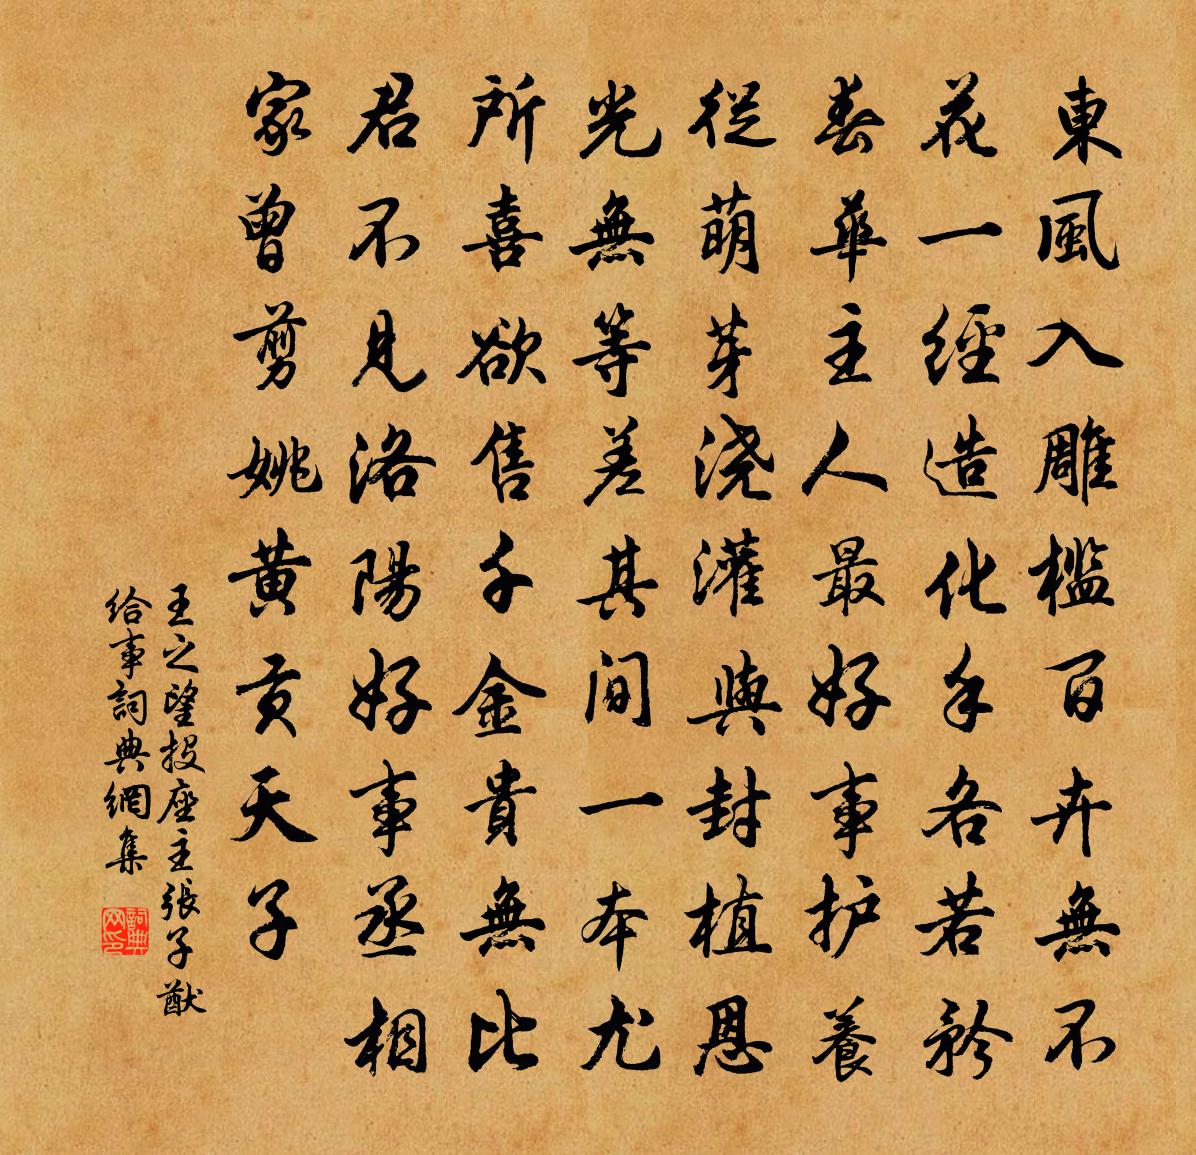 東風入雕檻百卉無不
花一經造化手各若矜
春華主人最好事护養
從萌芽浇灌與封植恩
光無等差其间一本尤
所喜欲售千金貴無比
君不見洛陽好事丞相
家曾剪姚黄贡天子
王之望投座主張子猷
给事詞典網集
詞典网印